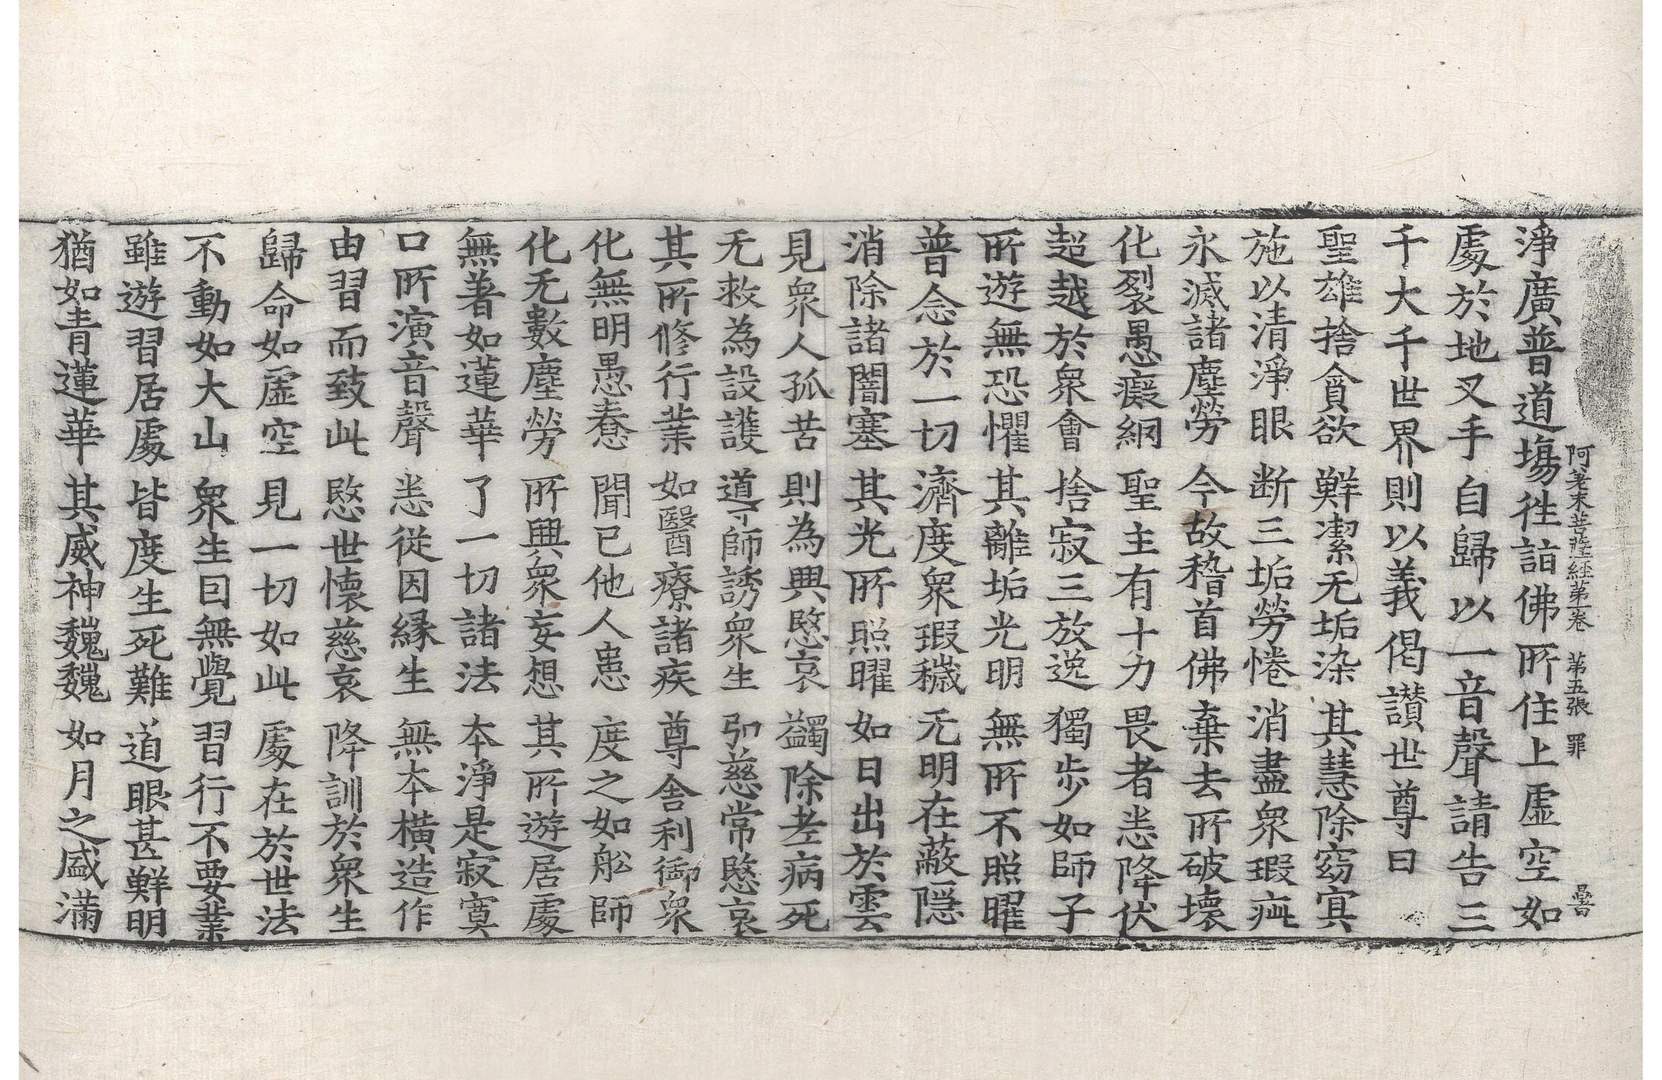 淨廣普道場徃詣佛所住上虛空如
阿差末菩薩経苐一卷 苐五張 罪 曇
處於地叉手自歸以一音聲請告三
千大千世界則以義偈讃世尊曰
聖雄捨貪欲 鮮潔无垢染 其慧除窈冥
施以清淨眼 断三垢勞惓 消盡衆瑕疵
永滅諸塵勞 今故稽首佛 棄去所破壞
化裂愚癡網 聖主有十力 畏者悉降伏
超越於衆會 捨寂三放逸 獨步如師子
所遊無恐懼 其離垢光明 無所不照曜
普念於一切 濟度衆瑕穢 无明在蔽隠
消除諸闇塞 其光所照曜 如日出於雲
見衆人孤苦 則為興愍哀 蠲除老病死
无救為設護 導師誘衆生 引慈常愍哀
其所修行業 如醫療諸疾 尊舍利御衆
化無明愚惷 聞已他人患 度之如舩師
化无數塵勞 所興衆妄想 其所遊居處
無著如蓮華 了一切諸法 本淨是寂寞
口所演音聲 悉從因縁生 無本橫造作
由習而致此 愍世懷慈哀 降訓於衆生
歸命如虛空 見一切如此 處在於世法
不動如大山 衆生囙無覺 習行不要業
雖遊習居處 皆度生死難 道眼甚鮮明
猶如青蓮華 其威神巍巍 如月之盛滿